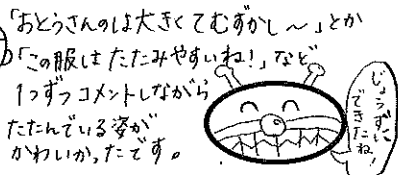 「おとうさんのは大きくてむずかし〜」とか
「この服はたたみやすいね!」など
1つずつコメントしながら
たたんでいる姿が
かわいかったです。
じょうずに
できたね!